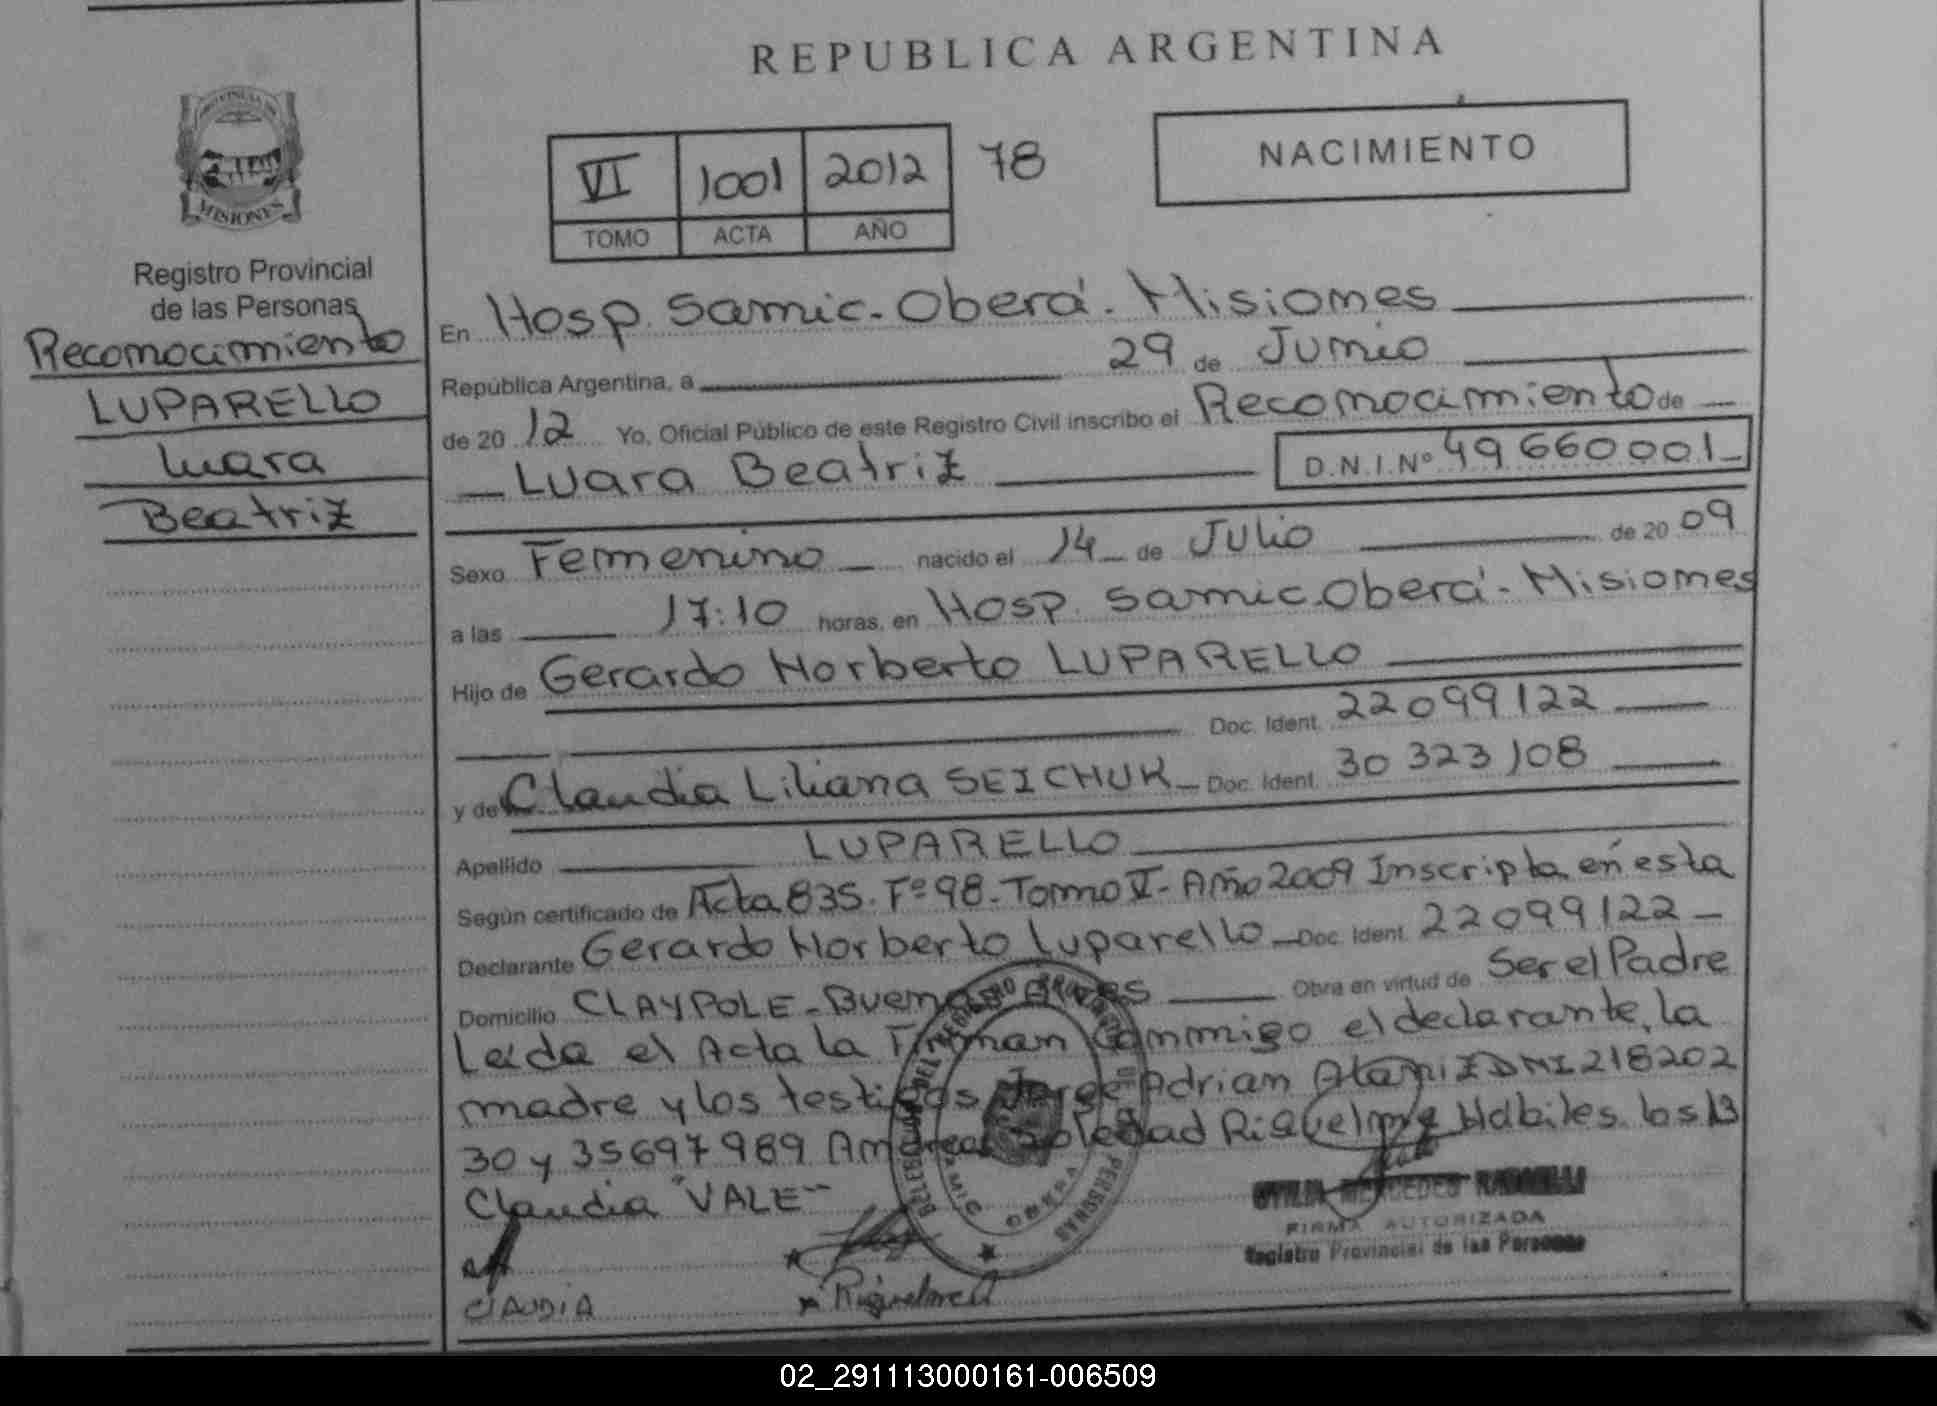 REPUBLICA ARGENTINA
NACIMIENTO
VI 1001 2012 78
TOMO ACTA AÑO
PROVINCIA DE
MISIONES
Registro Provincial
de las Personas
Reconocimiento
LUPARELLO
Luara
Beatriz
En Hosp. Samic - Oberá - Misiones
República Argentina, a 29 de Junio
de 20 12 Yo, Oficial Público de este Registro Civil inscribo el Reconocimiento de
Luara Beatriz D.N.I. Nº 49660001
Sexo Femenino nacido el 14 de Julio de 20 09
a las 17:10 horas, en Hosp. Samic Oberá - Misiones
Hijo de Gerardo Norberto LUPARELLO
Doc. Ident. 22099122
y de Claudia Liliana SEICHUK Doc. Ident. 30 323 108
Apellido LUPARELLO
Según certificado de Acta 835. Fº 98 - Tomo V - Año 2009 Inscripta en esta
Declarante Gerardo Norberto Luparello Doc. Ident. 22099122
Domicilio CLAYPOLE - Buenos Aires Obra en virtud de Ser el Padre
Leída el Acta la Firman Conmigo el declarante, la
madre y los testigos Jorge Adrian DNI 218202
30 y 35697989 Andrea Soledad Riquelme Hábiles. los 13
Claudia "VALE"
CLAUDIA
Riquelme A
MERCEDES
FIRMA AUTORIZADA
Registro Provincial de las Personas
02_291113000161-006509